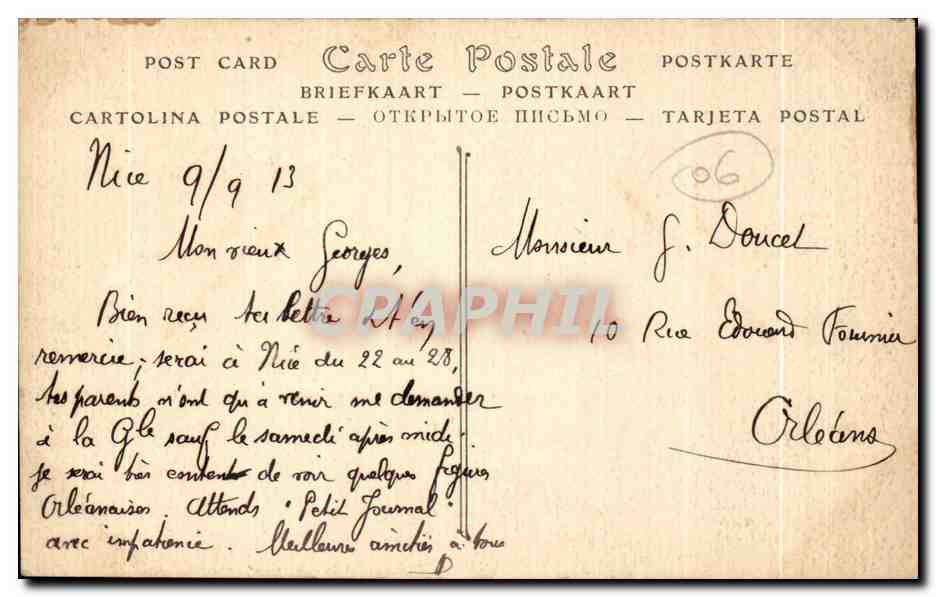 POST CARD Carte Postale POSTKARTE
BRIEFKAART — POSTKAART
CARTOLINA POSTALE — ОТКРЫТОЕ ПИСЬМО — TARJETA POSTAL
06
Nice 9/9 13
Mon vieux Georges,
Bien reçu ta lettre et t'en
remercie; serai à Nice du 22 au 28,
tes parents n'ont qu'à venir me demander
à la Gle sauf le samedi après midi.
Je serai très content de voir quelques figures
Orléanaises. Attends "Petit Journal"
avec impatience. Meilleures amitiés à tous
Monsieur G. Doucet
10 Rue Edouard Fournier
Orléans
CPAPHIL